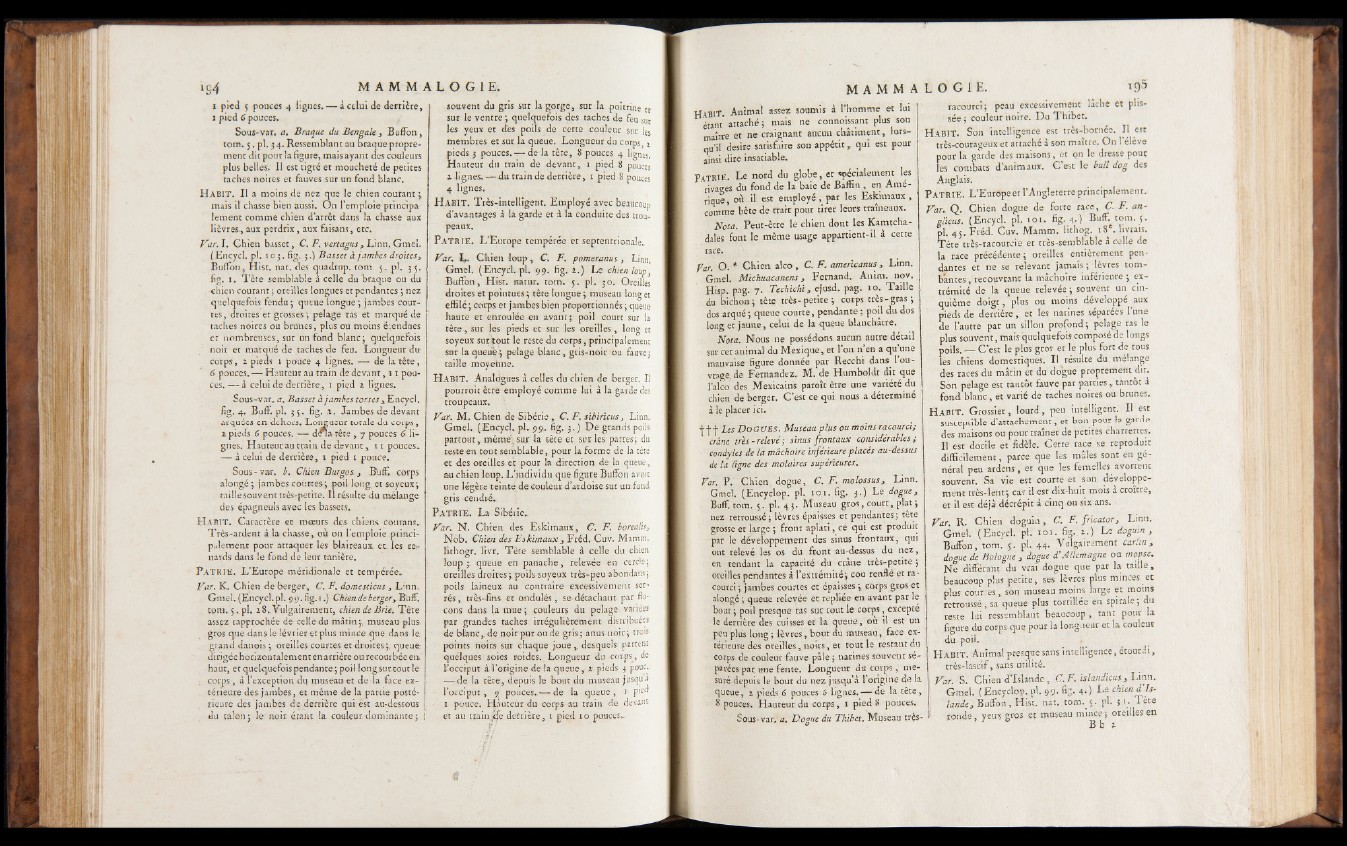 194 MAMMALOGIE.
1 pied 5 pouces 4 lignes. — à celui de derrière,
1 pied 6 pouces.
Sous-var. a. Braque du Bengale, Buffon,
tom. 5, pl. 34. Ressemblant au braque propre-
ment dit pour la figure, mais ayant des couleurs
plus belles. Il est tigré et moucheté de petites
taches noires et fauves sur un fond blanc.
HABIT. Il a moins de nez que le chien courant;
mais il chasse bien aussi. On l'emploie principa-
lement comme chien d'arrêt dans la chasse aux
lièvres, aux perdrix, aux faisans, etc.
Var. I. Chien basset, C. F. vertagus, Linn. Gmel.
(Encycl. pl. 103. fig. 3.) Basset à jambes droites,
Buffon, Hist. nat. des quadrup. tom. 5. pl. 35.
fig. 1. Tête semblable à celle du braque ou du
chien courant; oreilles longues et pendantes; nez
quelquefois fendu; queue longue; jambes cour-
tes, droites et grosses; pelage ras et marqué de
taches noires ou brunes, plus ou moins étendues
et nombreuses, sur un fond blanc; quelquefois
noir et marqué de taches de feu. Longueur du
corps, 2 pieds 1 pouce 4 lignes. — de la tête,
6 pouces. — Hauteur au train de devant, 11 pou-
ces. — à celui de derrière, 1 pied 2 lignes.
Sous-var. a. Basset à jambes torses, Encycl.
fig. 4. Buff. pl. 35. fig. 2. Jambes de devant
arquées en dehors. Longueur totale du corps,
2 pieds 6 pouces. — de la tête, 7 pouces 6 li-
gnes. Hauteur au train de devant, 11 pouces.
— à celui de derrière, 1 pied 1 pouce.
Sous-var. b. Chien Burgos, Buff. corps
alongé; jambes courtes; poil long et soyeux;
taille souvent très-petite. Il résulte du mélange
des épagneuls avec les bassets.
HABIT. Caractère et mœurs des chiens courans.
Très-ardent à la chasse, où on l'emploie princi-
palement pour attaquer les blaireaux et les re-
nards dans le fond de leur tanière.
PATRIE. L'Europe méridionale et tempérée.
Var. K. Chien de berger, C. F. domesticus, Linn.
Gmel. (Encycl. pl. 99. fig. 1.) Chien de berger, Buff.
tom. 5. pl. 28. Vulgairement, chien de Brie. Tête
assez rapprochée de celle du mâtin; museau plus
gros que dans le lévrier et plus mince que dans le
grand danois; oreilles courtes et droites; queue
dirigée horizontalement en arrière ou recourbée en
haut, et quelquefois pendante; poil long sur tout le
corps, à l'exception du museau et de la face ex-
térieure des jambes, et même de la partie posté-
rieure des jambes de derrière qui est au-dessous
du talon; le noir étant la couleur dominante;
souvent du gris sur la gorge, sur la poitrine et
sur le ventre; quelquefois des taches de feu sur
les yeux et des poils de cette couleur sur les
membres et sur la queue. Longueur du corps, 2
pieds 3 pouces. — de la tête, 8 pouces 4 lignes.
Hauteur du train de devant, 1 pied 8 pouces
2 lignes. — du train de derrière, 1 pied 8 pouces
4 lignes.
HABIT. Très-intelligent. Employé avec beaucoup
d'avantages à la garde et à la conduite des trou-
peaux.
PATRIE. L'Europe tempérée et septentrionale.
Var. L. Chien loup, C. F. pomeranus, Linn.
Gmel. (Encycl. pl. 99. fig. 2.) Le chien loup,
Buffon, Hist. natur. tom. 5. pl. 30. Oreilles
droites et pointues; tête longue; museau long et
effilé; corps et jambes bien proportionnés; queue
haute et enroulée en avant; poil court sur la
tête, sur les pieds et sur les oreilles, long et
soyeux sur tout le reste du corps, principalement
sur la queue; pelage blanc, gris-noir ou fauve;
taille moyenne.
HABIT. Analogues à celles du chien de berger. Il
pourroit être employé comme lui à la garde des
troupeaux.
Var. M. Chien de Sibérie, C. F. sibiricus, Linn.
Gmel. (Encycl. pl. 99. fig. 3.) De grands poils
partout, même sur la tête et sur les pattes; du
reste en tout semblable, pour la forme de la tête
et des oreilles et pour la direction de la queue,
au chien loup. L'individu que figure Buffon avoit
une légère teinte de couleur d'ardoise sur un fond
gris cendré.
PATRIE. La Sibérie.
Var. N. Chien des Eskimaux, C. F. borealis,
Nob. Chien des Eskimaux, Fréd. Cuv. Mamm.
lithogr. livr. Tête semblable à celle du chien
loup; queue en panache, relevée en cercle;
oreilles droites; poils soyeux très-peu abondans;
poils laineux au contraire excessivement ser-
rés, très-fins et ondulés, se détachant par flo-
cons dans la mue; couleurs du pelage variées
par grandes taches irrégulièrement distribuées
de blanc, de noir pur ou de gris; anus noir; trois
points noirs sur chaque joue, desquels partent
quelques soies roides. Longueur du corps, de
l'occiput à l'origine de la queue, 2 pieds 4 pouc.
— de la tête, depuis le bout du museau jusqu'à
l'occiput, 9 pouces. — de la queue, 1 pied
1 pouce. Hauteur du corps au train de devant
et au train de derrière, 1 pied 10 pouces.
MAMMALOGIE. 195
HABIT. Animal assez soumis à l'homme et lui
étant attaché; mais ne connoissant plus son
maître et ne craignant aucun châtiment, lors-
qu'il desire satisfaire son appétit, qui est pour
ainsi dire insatiable.
PATRIE. Le nord du globe, et spécialement les
rivages du fond de la baie de Baffin, en Amé-
rique, où il est employé, par les Eskimaux,
comme bête de trait pour tirer leurs traîneaux.
Nota. Peut-être le chien dont les Kamtcha-
dales font le même usage appartient-il à cette
race.
Var. O. * Chien alco, C. F. americanus, Linn.
Gmel. Michuacanens, Fernand. Anim. nov.
Hisp. pag. 7. Techichi, ejusd. pag. 10. Taille
du bichon; tête très-petite; corps très-gras;
dos arqué; queue courte, pendante; poil du dos
long et jaune, celui de la queue blanchâtre.
Nota. Nous ne possédons aucun autre détail
sur cet animal du Mexique, et l'on n'en a qu'une
mauvaise figure donnée par Recchi dans l'ou-
vrage de Fernandez. M. de Humboldt dit que
l'alco des Mexicains paroît être une variété du
chien de berger. C'est ce qui nous a déterminé
à le placer ici.
††† Les DOGUES. Museau plus ou moins racourci;
crâne très-relevé; sinus frontaux considérables;
condyles de la mâchoire inférieure placés au-dessus
de la ligne des molaires supérieures.
Var. P. Chien dogue, C. F. molossus, Linn.
Gmel. (Encyclop. pl. 101. fig. 3.) Le dogue,
Buff. tom. 5. pl. 43. Museau gros, court, plat;
nez retroussé; lèvres épaisses et pendantes; tête
grosse et large; front aplati, ce qui est produit
par le développement des sinus frontaux, qui
ont relevé les os du front au-dessus du nez,
en rendant la capacité du crâne très-petite;
oreilles pendantes à l'extrémité; cou renflé et ra-
courci; jambes courtes et épaisses; corps gros et
alongé; queue relevée et repliée en avant par le
bout; poil presque ras sur tout le corps, excepté
le derrière des cuisses et la queue, où il est un
peu plus long; lèvres, bout du museau, face ex-
térieure des oreilles, noirs, et tout le restant du
corps de couleur fauve pâle; narines souvent sé-
parées par une fente. Longueur du corps, me-
suré depuis le bout du nez jusqu'à l'origine de la
queue, 2 pieds 6 pouces 6 lignes. — de la tête,
8 pouces. Hauteur du corps, 1 pied 8 pouces.
Sous-var. a. Dogue du Thibet. Museau très-
racourci; peau excessivement lâche et plis-
sée; couleur noire. Du Thibet.
HABIT. Son intelligence est très-bornée. Il est
très-courageux et attaché à son maître. On l'élève
pour la garde des maisons, et on le dresse pour
les combats d'animaux. C'est le bull dog des
Anglais.
PATRIE. L'Europe et l'Angleterre principalement.
Var. Q. Chien dogue de forte race, C. F. an-
glicus. (Encycl. pl. 101. fig. 4.) Buff. tom. 5.
pl. 45. Fréd. Cuv. Mamm. lithog. 18e. livrais.
Tête très-raccourcie et très-semblable à celle de
la race précédente; oreilles entièrement pen-
dantes et ne se relevant jamais; lèvres tom-
bantes, recouvrant la mâchoire inférieure; ex-
trémité de la queue relevée; souvent un cin-
quième doigt, plus ou moins développé aux
pieds de derrière, et les narines séparées l'une
de l'autre par un sillon profond; pelage ras le
plus souvent, mais quelquefois composé de longs
poils. — C'est le plus gros et le plus fort de tous
les chiens domestiques. Il résulte du mélange
des races du mâtin et du dogue proprement dit.
Son pelage est tantôt fauve par parties, tantôt à
fond blanc, et varié de taches noires ou brunes.
HABIT. Grossier, lourd, peu intelligent. Il est
susceptible d'attachement, et bon pour la garde
des maisons ou pour traîner de petites charrettes.
Il est docile et fidèle. Cette race se reproduit
difficilement, parce que les mâles sont en gé-
néral peu ardens, et que les femelles avortent
souvent. Sa vie est courte et son développe-
ment très-lent; car il est dix-huit mois à croître,
et il est déjà décrépit à cinq ou six ans.
Var. R. Chien doguin, C. F. fricator, Linn.
Gmel. (Encycl. pl. 101. fig. 2.) Le doguin,
Buffon, tom. 5. pl. 44. Vulgairement carlin,
dogue de Bologne, dogue d'Allemagne ou mopse.
Ne différant du vrai dogue que par la taille,
beaucoup plus petite, ses lèvres plus minces et
plus courtes, son museau moins large et moins
retroussé, sa queue plus tortillée en spirale; du
reste lui ressemblant beaucoup, tant pour la
figure du corps que pour la longueur et la couleur
du poil.
HABIT. Animal presque sans intelligence, étourdi,
très-lascif, sans utilité.
Var. S. Chien d'Islande, C. F. islandicus, Linn.
Gmel. (Encyclop. pl. 99. fig. 4.) Le chien d'Is-
lande, Buffon, Hist. nat. tom. 5. pl. 31. Tête
ronde, yeux gros et museau mince; oreilles en
B b 2